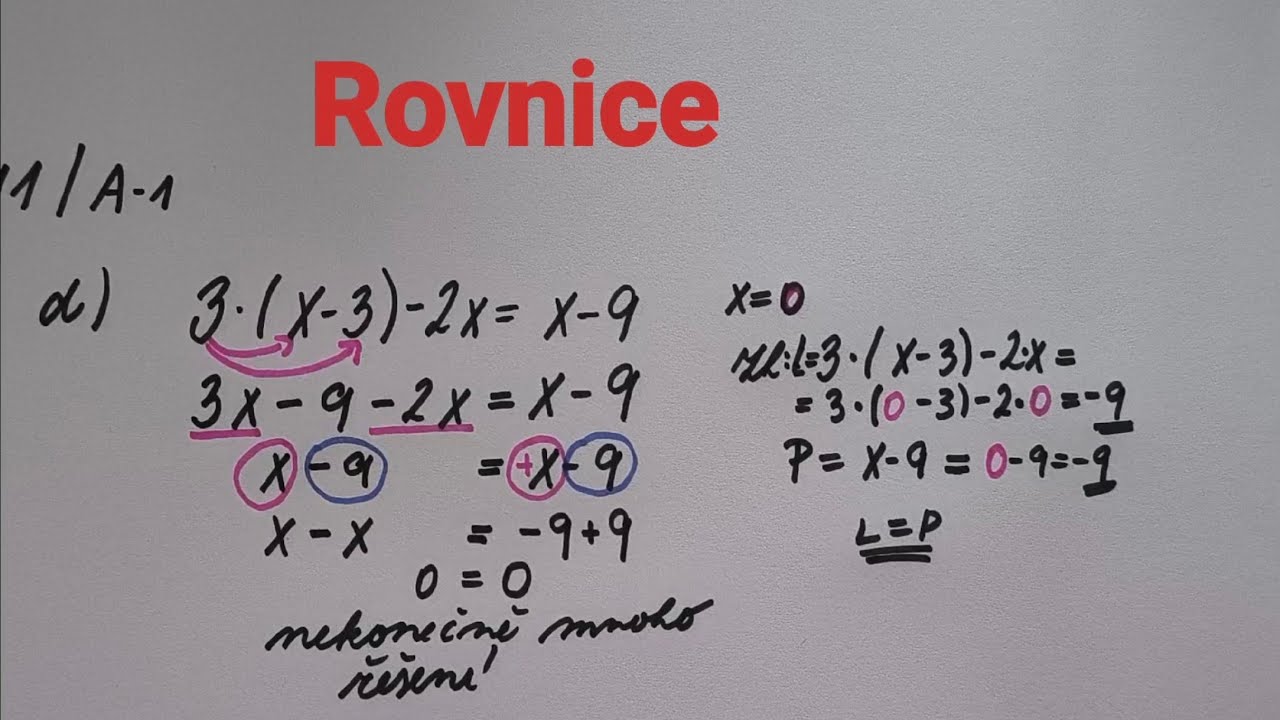 Rovnice
11/A-1
d) 3·(x-3)-2x= x-9
3x-9-2x=x-9
x-9 =+x-9
x-x = -9+9
0=0
nekonečně mnoho
řešení
x=0
zk:L=3·(x-3)-2·x=
=3·(0-3)-2·0=-9
P=x-9=0-9=-9
L=P